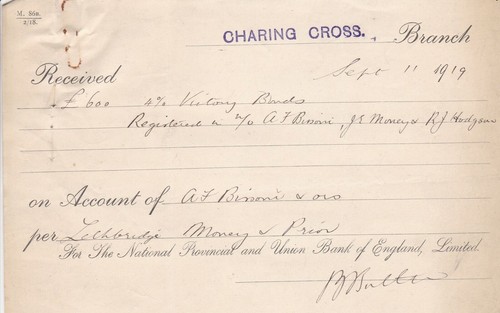 M. 86a.
2/18.
CHARING CROSS. Branch
Sept 11 1919
Received
£600 4% Victory Bonds
Registered in n/o A F Bisoni, J E Money & R J Hodgson
on Account of A F Bisoni & ors
per Lethbridge Money & Prior
For The National Provincial and Union Bank of England, Limited.